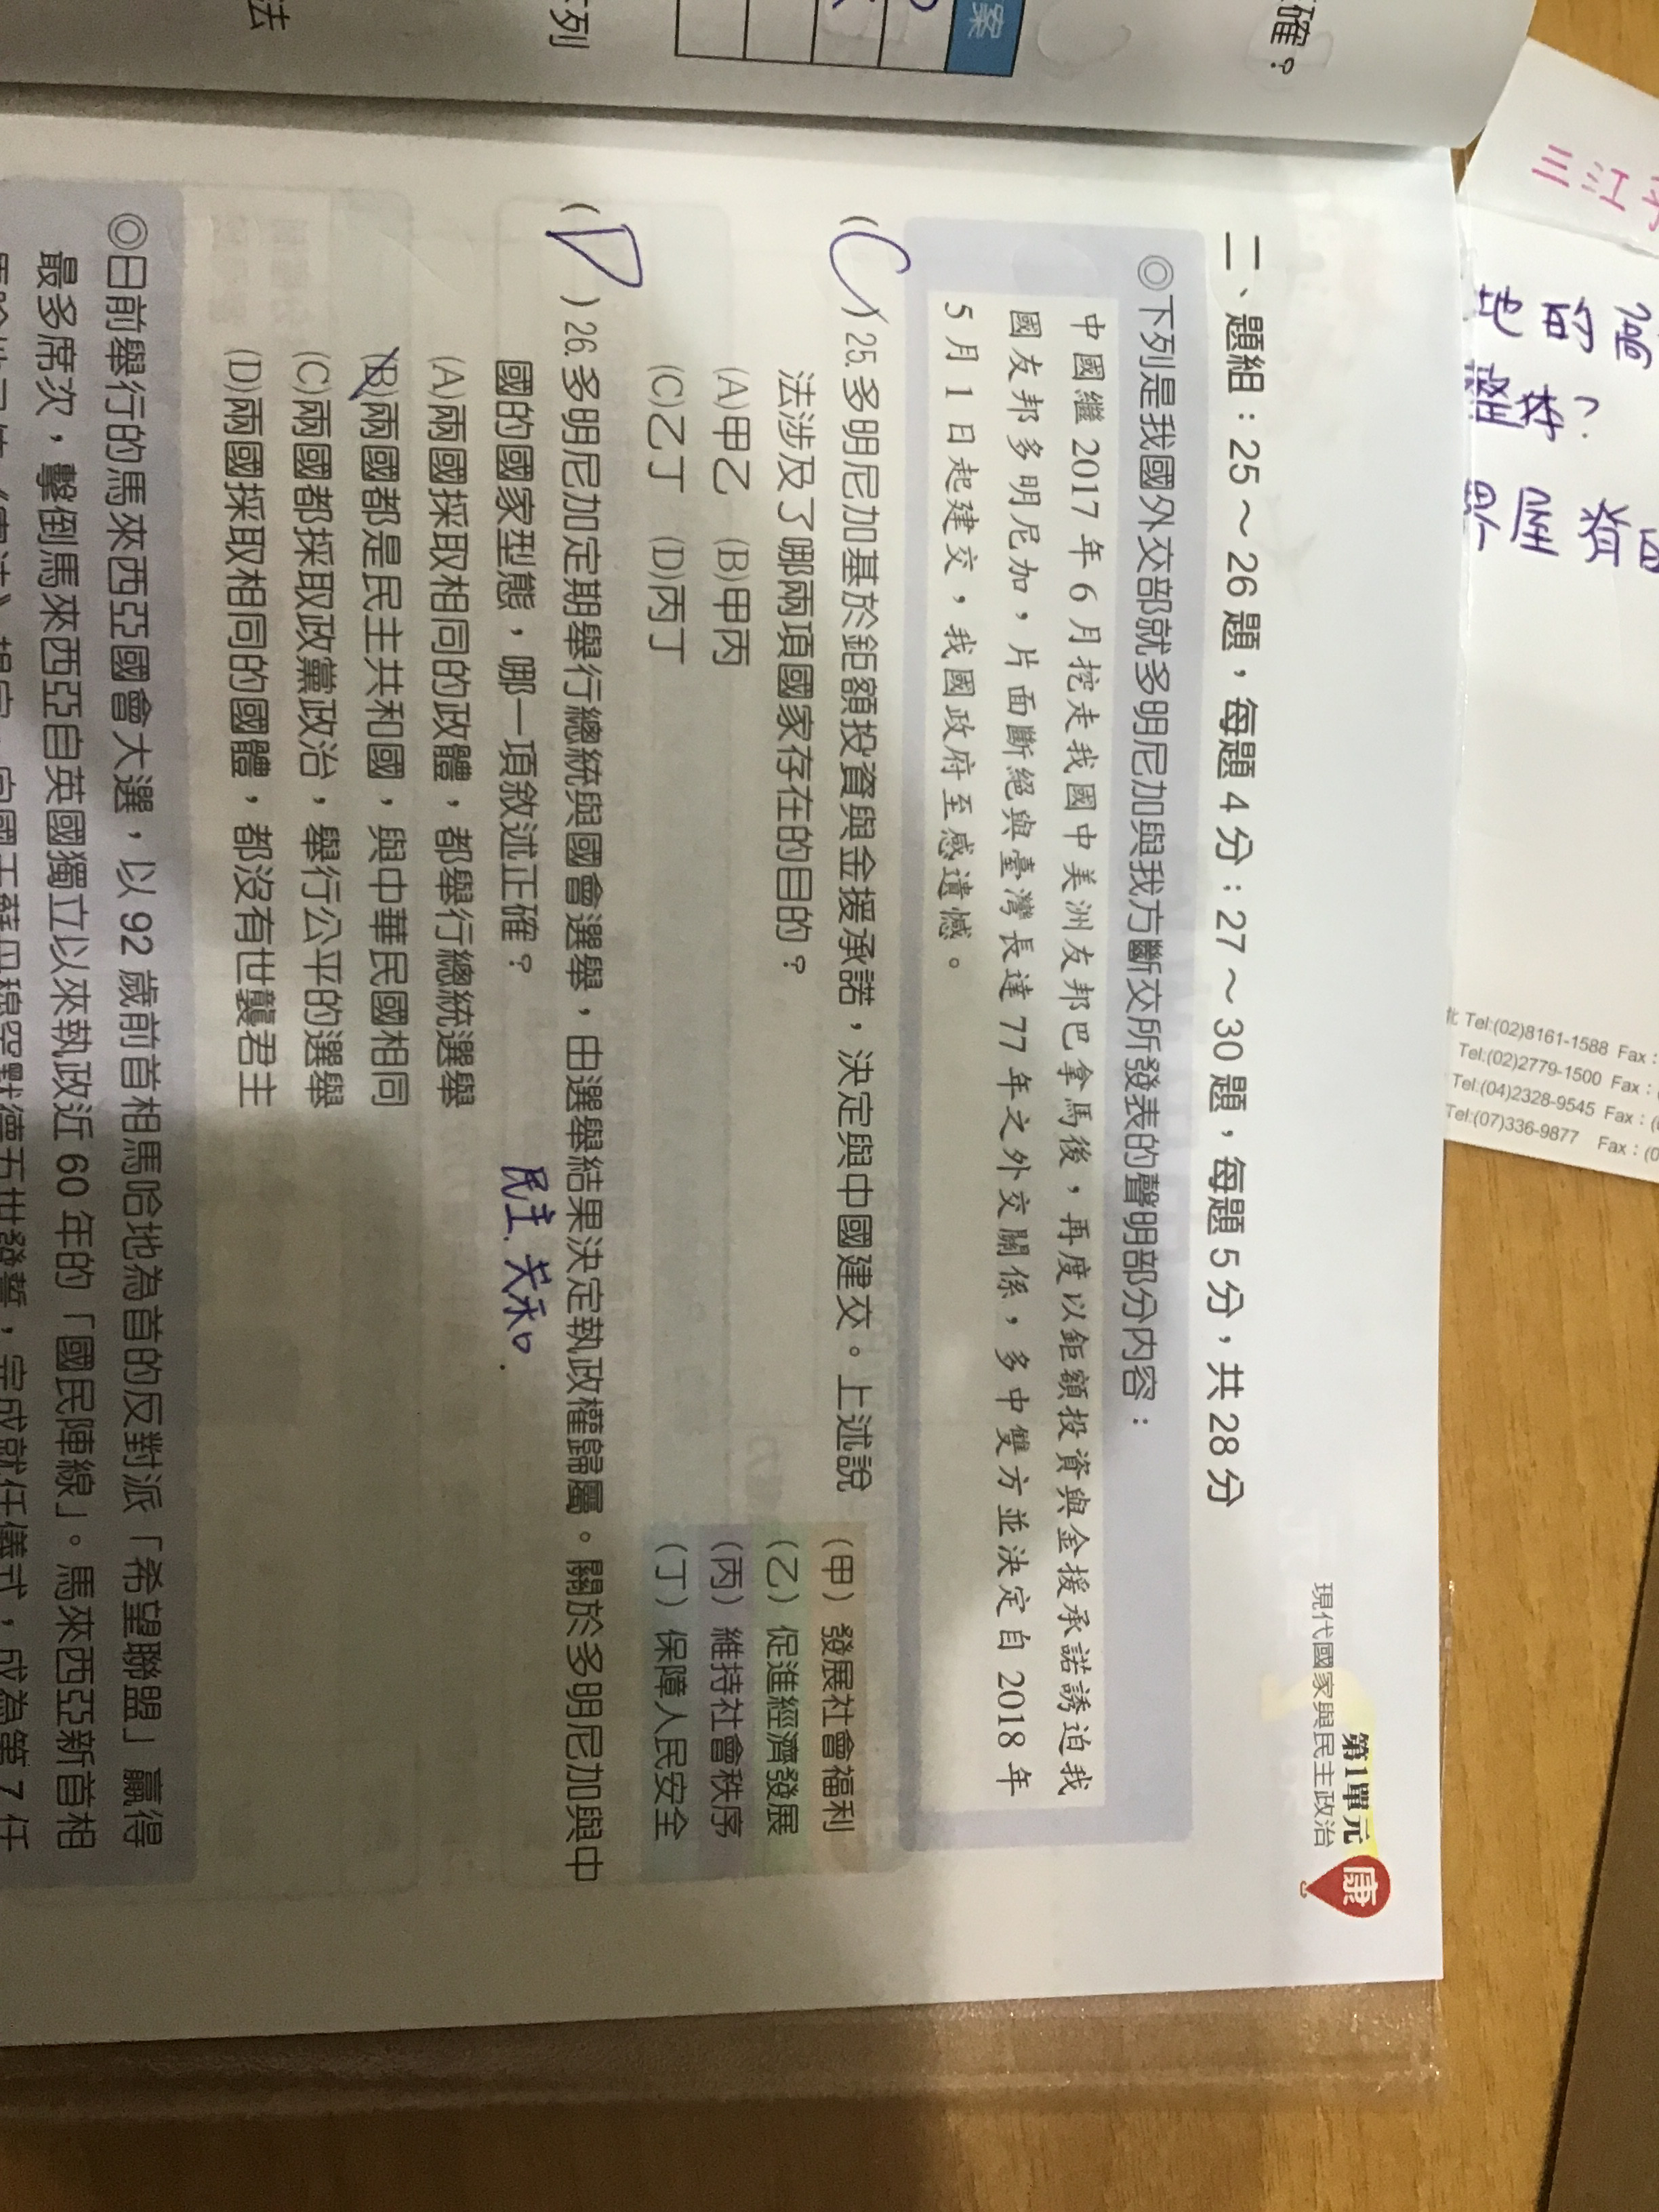 第1單元
現代國家與民主政治
康
二、題組：25～26題，每題4分；27～30題，每題5分，共28分
◎下列是我國外交部就多明尼加與我方斷交所發表的聲明部分內容：
中國繼2017年6月挖走我國中美洲友邦巴拿馬後，再度以鉅額投資與金援承諾誘迫我
國友邦多明尼加，片面斷絕與臺灣長達77年之外交關係，多中雙方並決定自2018年
5月1日起建交，我國政府至感遺憾。
(C)25.多明尼加基於鉅額投資與金援承諾，決定與中國建交。上述說
法涉及了哪兩項國家存在的目的？
(A)甲乙 (B)甲丙
(C)乙丁 (D)丙丁
(甲)發展社會福利
(乙)促進經濟發展
(丙)維持社會秩序
(丁)保障人民安全
(D)26.多明尼加定期舉行總統與國會選舉，由選舉結果決定執政權歸屬。關於多明尼加與中
國的國家型態，哪一項敘述正確？
民主.
(A)兩國採取相同的政體，都舉行總統選舉
(B)兩國都是民主共和國，與中華民國相同
(C)兩國都採取政黨政治，舉行公平的選舉
(D)兩國採取相同的國體，都沒有世襲君主
◎日前舉行的馬來西亞國會大選，以92歲前首相馬哈地為首的反對派「希望聯盟」贏得
最多席次，擊倒馬來西亞自英國獨立以來執政近60年的「國民陣線」。馬來西亞新首相
確？
案
列
法
三江
地的
Tel:(02)8161-1588 Fax：
Tel:(02)2779-1500 Fax：
Tel:(04)2328-9545 Fax：
Tel:(07)336-9877 Fax：(0